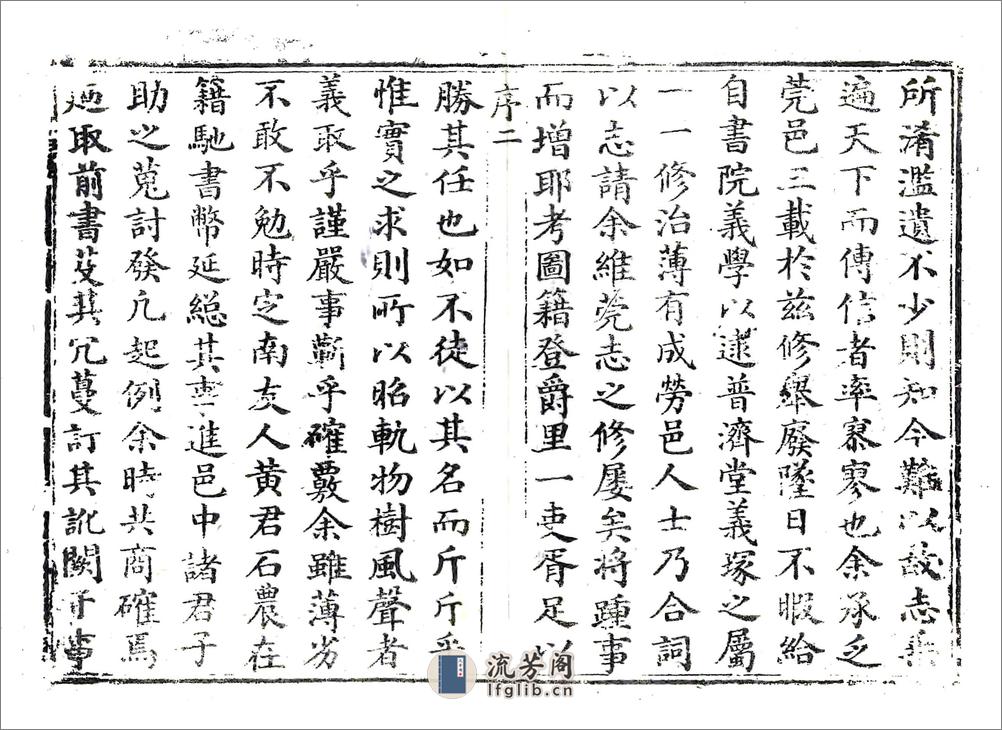 所淆濫遺不少則知今難以故志
遍天下而傳信者率寡寥也余承乏
莞邑三載於兹修舉廢墜日不暇給
自書院義學以逮普濟堂義塚之屬
一一修治薄有成勞邑人士乃合詞
以志請余維莞志之修屡矣將踵事
而增耶考圖籍登爵里一吏胥足以
序二
勝其任也如不徒以其名而斤斤乎
惟實之求則所以昭軌物樹風聲者
義取乎謹嚴事蘄乎確覈余雖薄劣
不敢不勉時定南友人黃君石農在
籍馳書幣延總其事進邑中諸君子
助之蒐討發凢起例余時共商確焉
廼取前書芟其冗蔓訂其訛闕于事
流芳阁
lfglib.cn